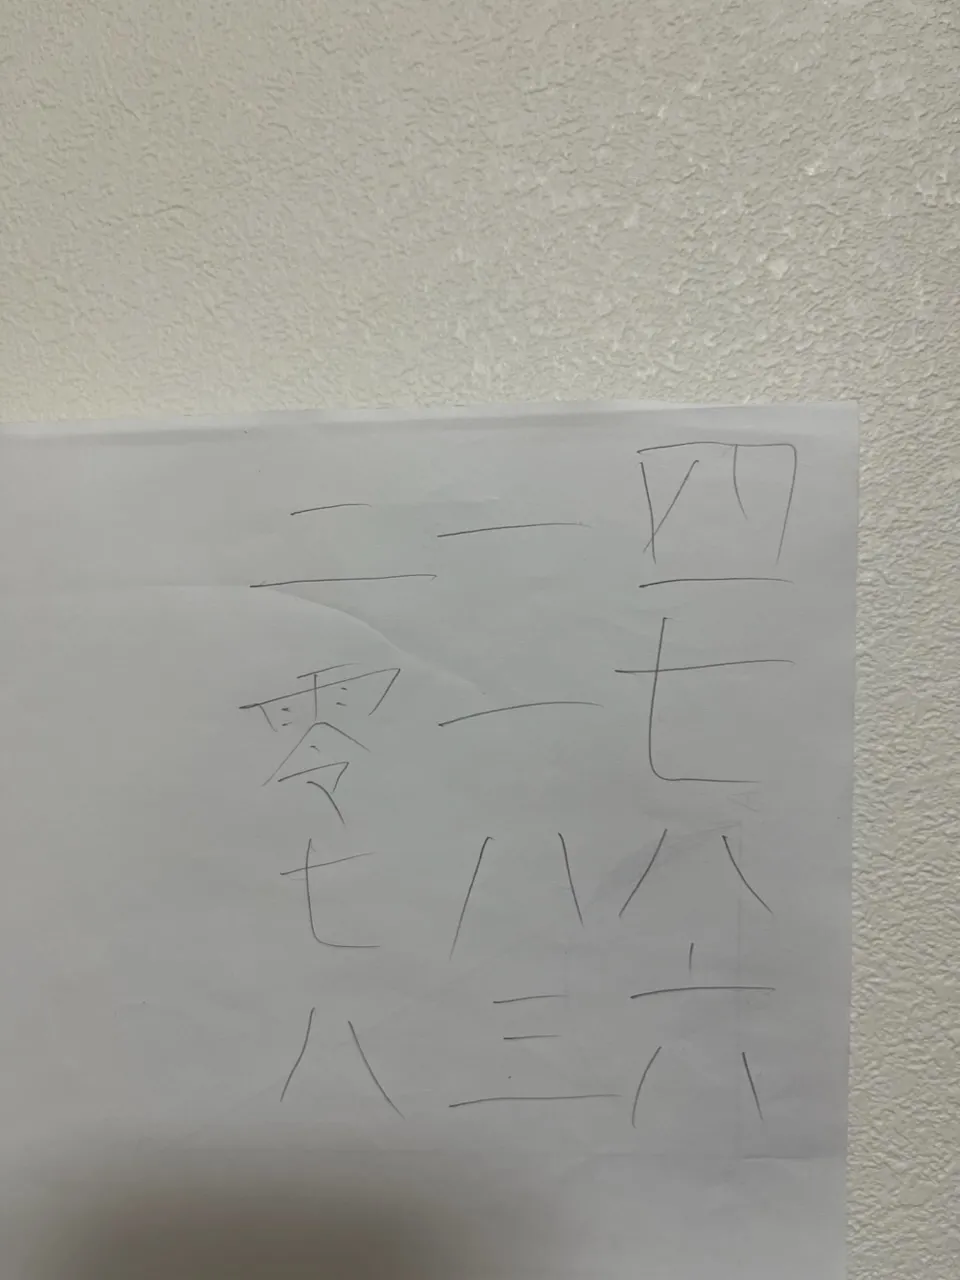 四七八六
一一八三
二零七八